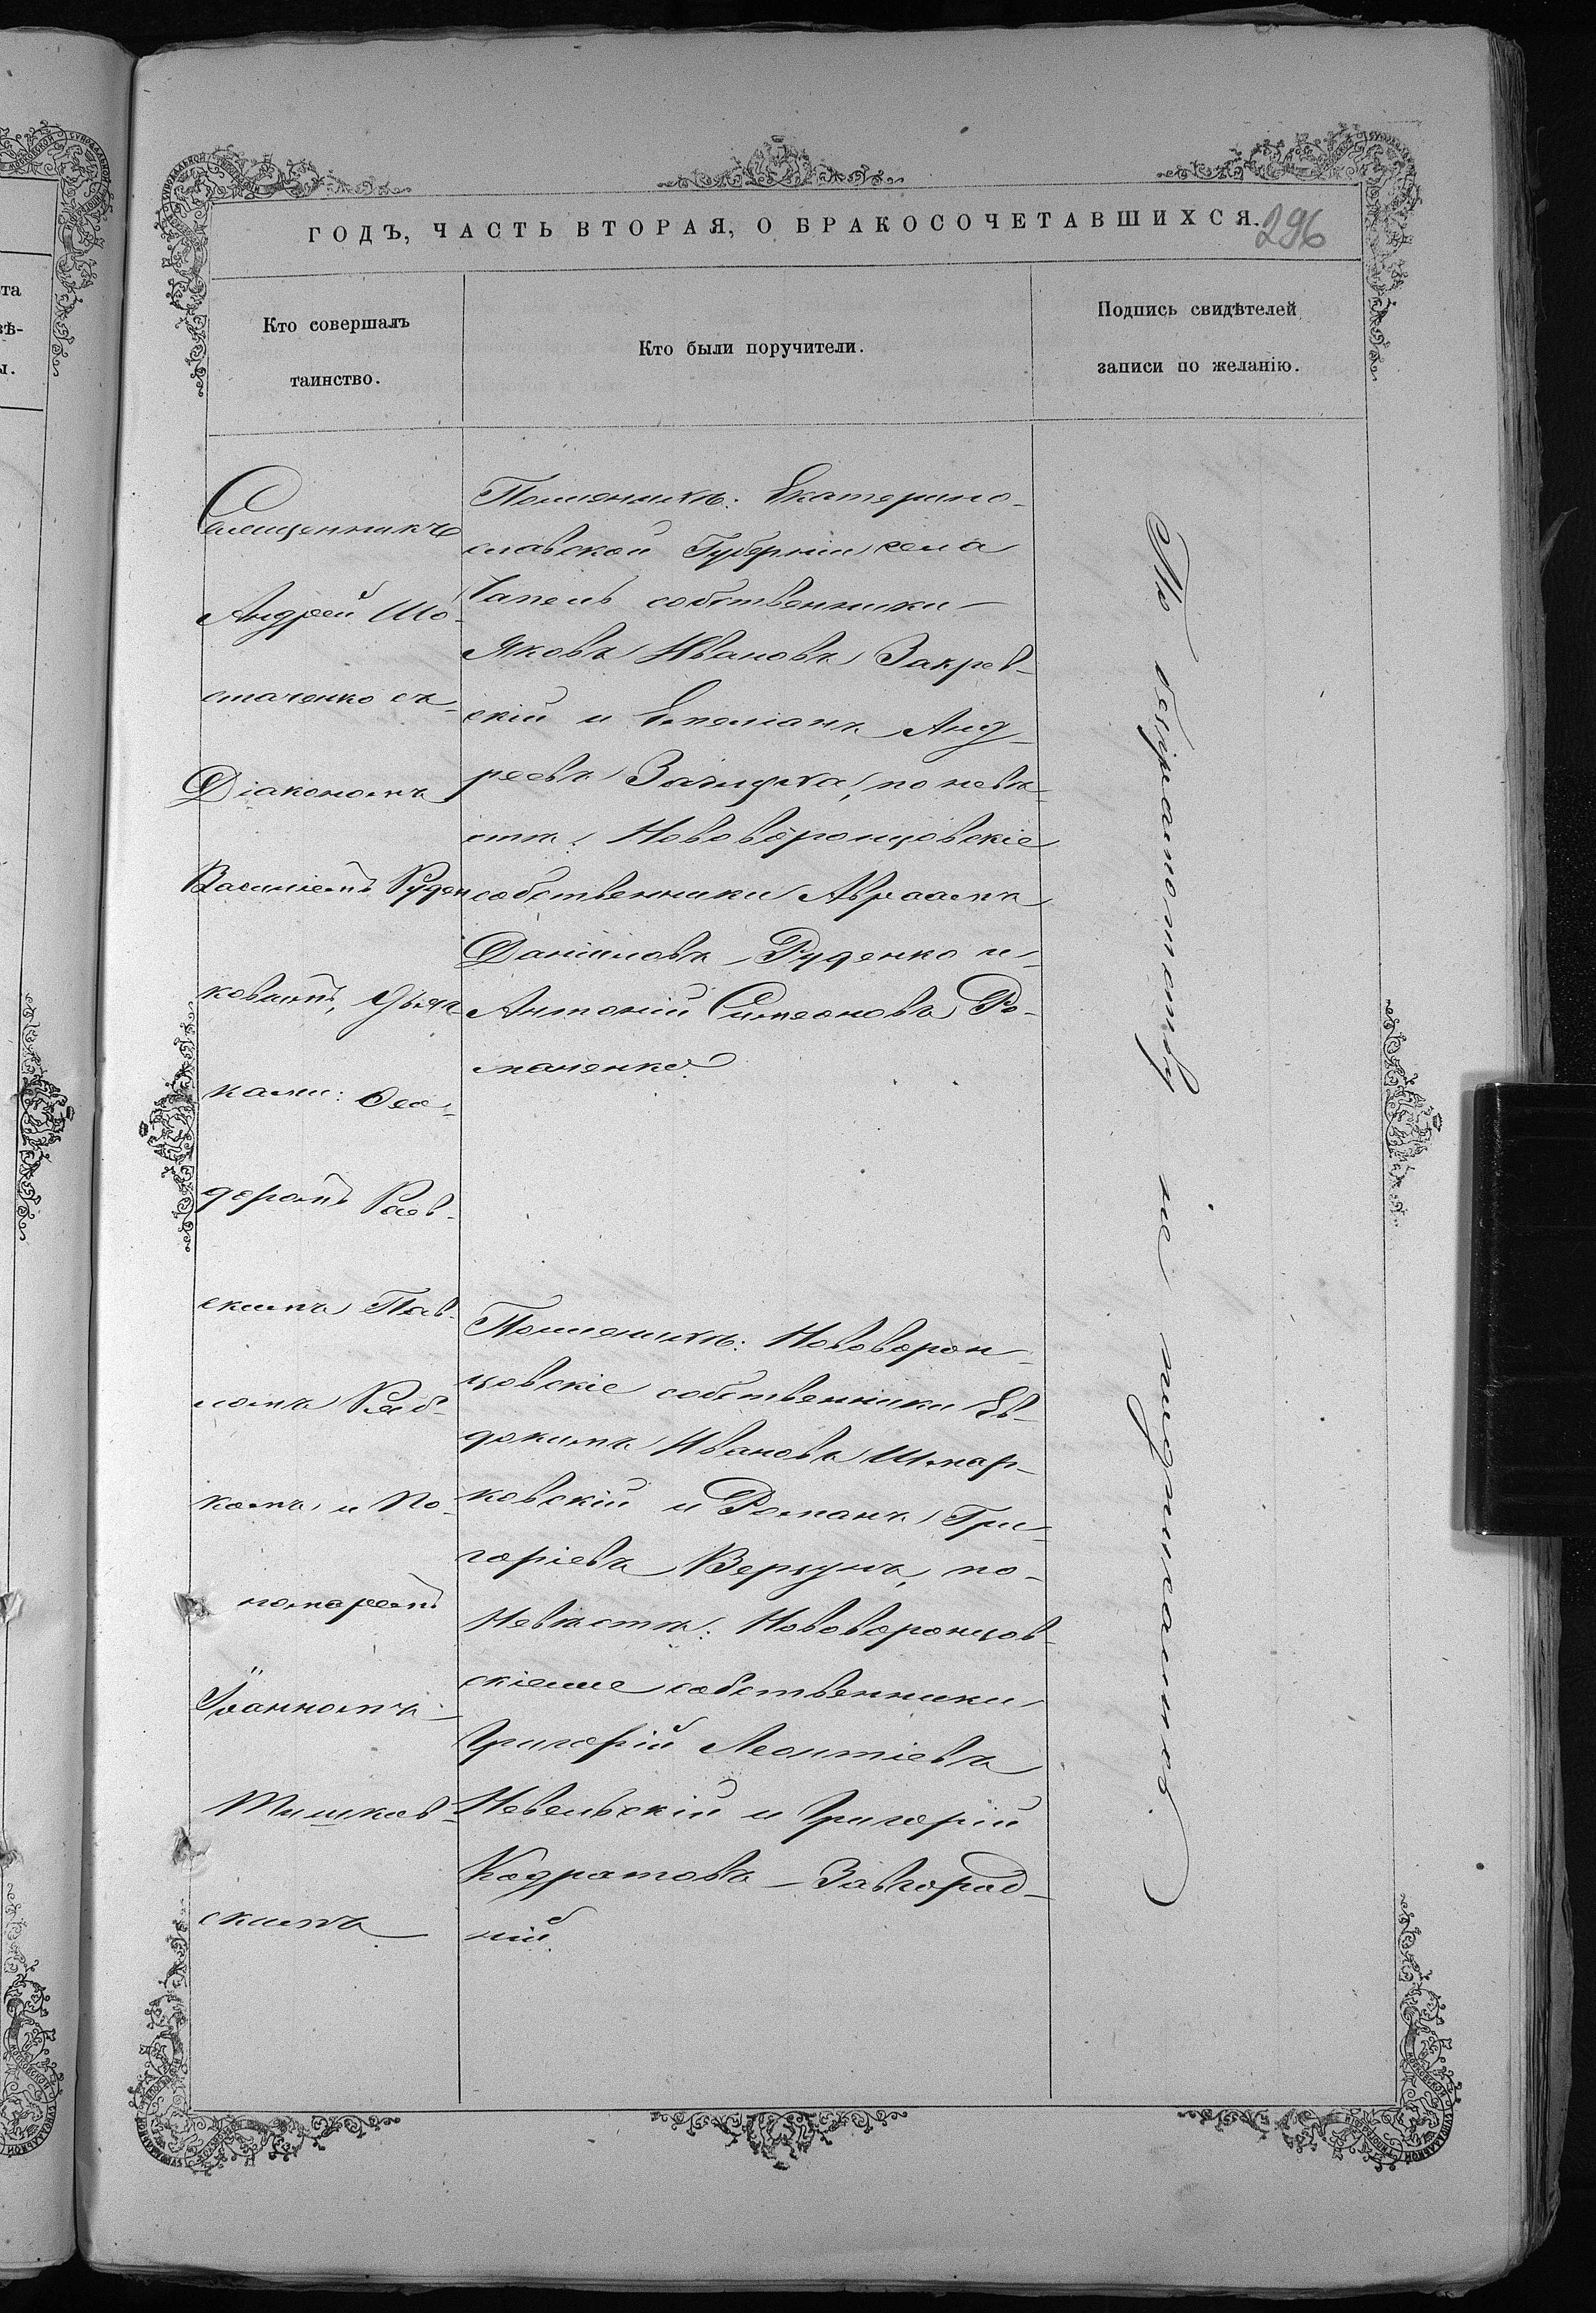 ГОДЪ, ЧАСТЬ ВТОРАЯ, О БРАКОСОЧЕТАВШИХСЯ.
296
Кто совершалъ
таинство.
Кто были поручители.
Подпись свидѣтелей
записи по желанію.
Священникъ
Андрей Шо-
стаченко съ
Діакономъ
Василіемъ Руден
ковымъ, дьяч
ками: Ѳео-
доромъ Раев-
скимъ Пав-
ломъ Ряб-
комъ и По-
номаремъ
Іоанномъ
Тишков-
скимъ
По женихѣ: Екатерино-
славской Губерніи села
собственники
Яковъ Ивановъ Закрев-
скій и Емеліанъ Анд-
реевъ по невѣ-
стѣ: Нововоронцовскіе
собственники Авраамъ
Даніиловъ Руденко и
Антоній Симеоновъ Ро-
маненко.
По женихѣ: Нововорон-
цовскіе собственники Ев-
докимъ Ивановъ Шмар-
ковскій и Романъ Гри-
горіевъ Вергунъ, по
Невѣстѣ: Нововоронцов-
скіеже собственники
Григорій Леонтіевъ
Невельскій и Григорій
Кодратовъ Завгород-
ній.
По безграмотству не подписались.
та
вѣ-
ы.